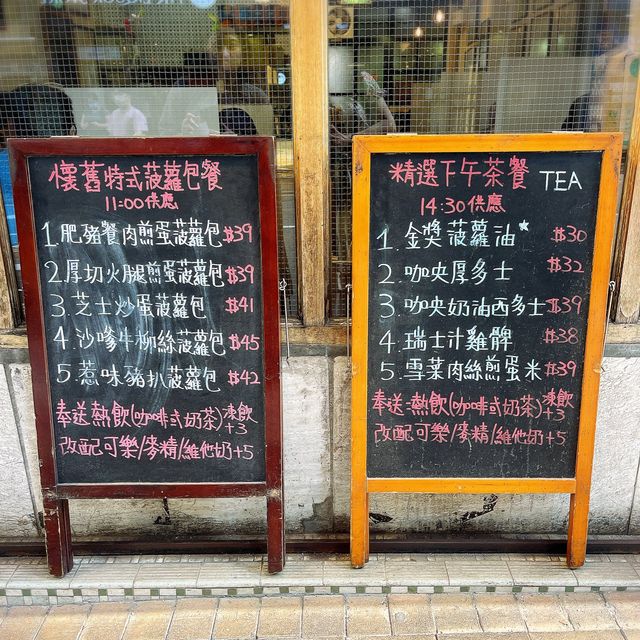 懷舊特式菠蘿包餐
11:00供應
1 肥豬餐肉煎蛋菠蘿包 $39
2.厚切火腿煎蛋菠蘿包 $39
3.芝士炒蛋菠蘿包 $41
4.沙嗲牛柳絲菠蘿包 $45
5.惹味豬扒菠蘿包 $42
奉送熱飲(咖啡或奶茶)凍飲+3
改配可樂/麥精/維他奶+5
精選下午茶餐 TEA
14:30供應
1. 金獎菠蘿油* $30
2. 咖央厚多士 $32
3.咖央奶油西多士 $39
4.瑞士汁雞髀 $38
5.雪菜肉絲煎蛋米 $39
奉送熱飲(咖啡或奶茶)凍飲+3
改配可樂/麥精/維他奶+5